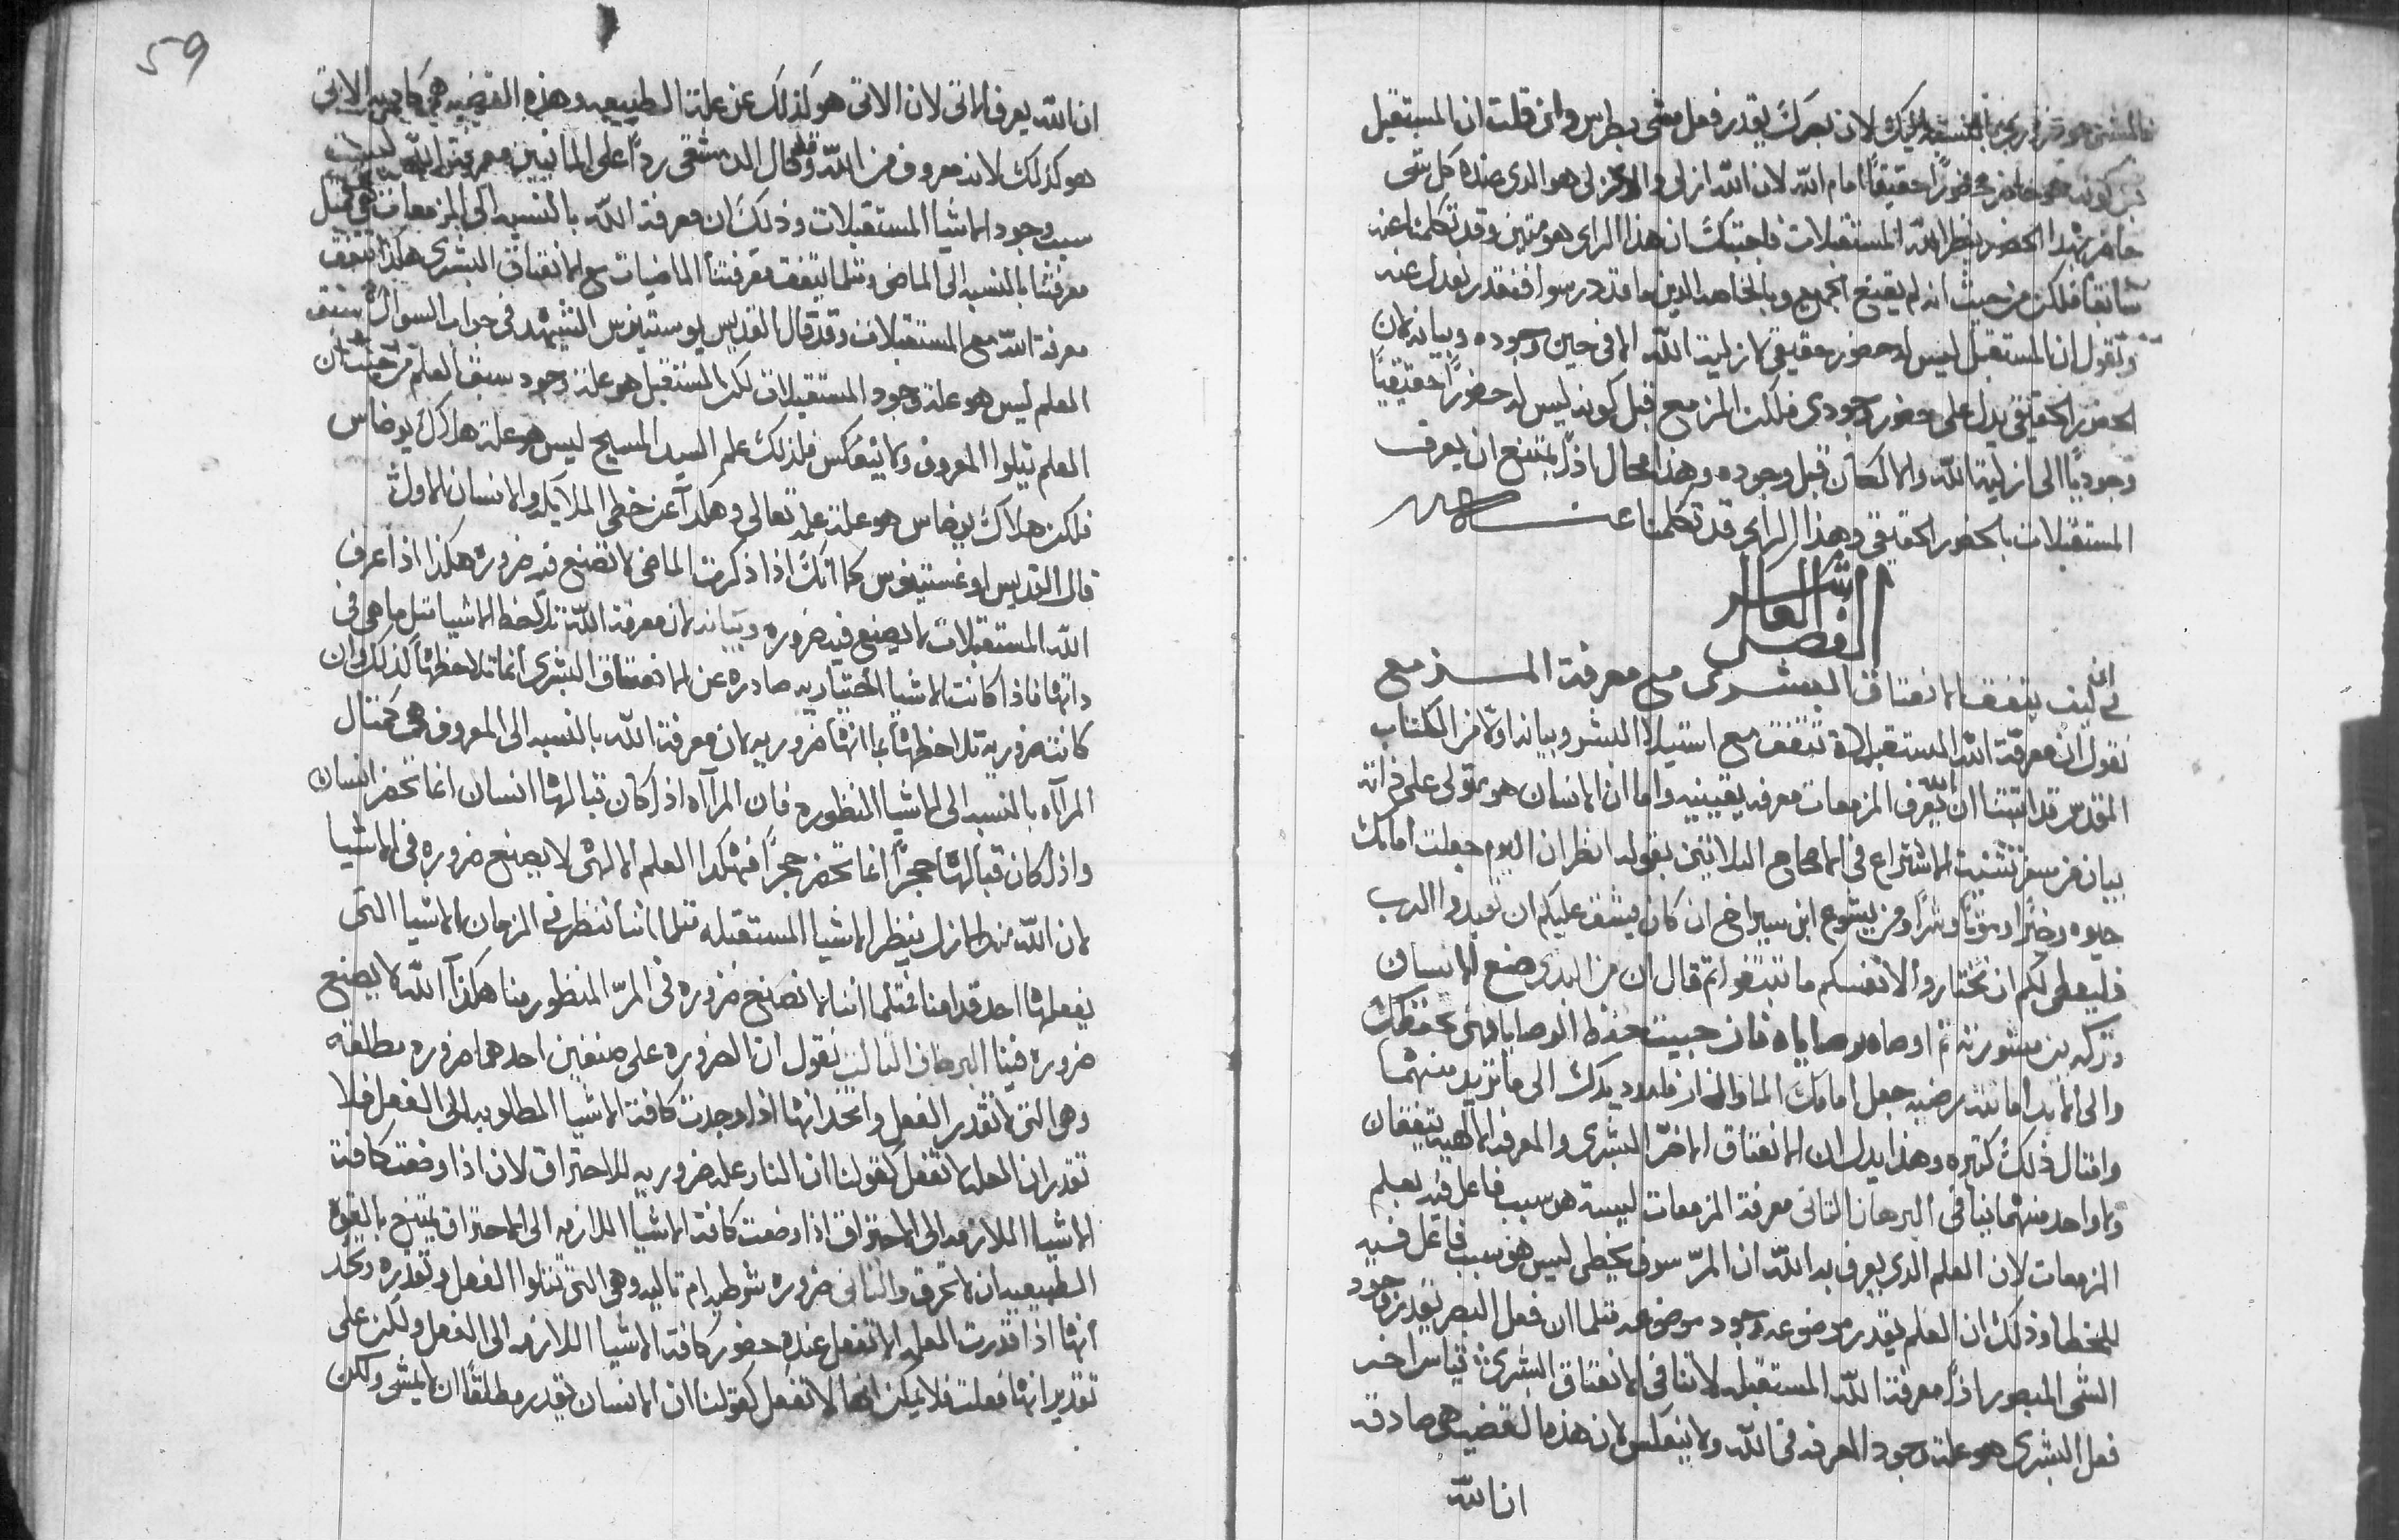 فالمشي هو ضروري بالنسبه اليك لان بصرك يقدر فعل مشي بطرس وان قلت ان المستقبل
قبل كونه هو حاضر حضورًا حقيقيًا امام الله لان الله ازلي والازلي هو الدي عنده كل شي
حاضر بهدا الحضور ينظر الله المستقبلات فاجبتك ان هذا الراي هو متين وقد تكلمنا عنه
سابقًا فلكن من حيث انه لم يقنع الجميع وبالخاصه الدين ما قد درسوا فنقدر نعدل عنه
ونقول ان المستقبل ليس له حضور حقيقي لازلية الله الا في حين وجوده وبيانه لان
الحضور الحقيقي يدل على حضور وجودي فلكن المزمع قبل كونه ليس له حضورًا حقيقيًا
وجوديًا الى ازلية الله والا لكان قبل وجوده وهذا محال اذًا يمتنع ان يعرف
المستقبلات بالحضور الحقيقي وهذا الراي قد تكلمنا عنه
الفصل العاشر
في انه كيف يتفق الانعتاق البشري مع معرفة المزمع
نقول ان معرفة الله المستقبلاة تتفق مع استيلا البشر وبيانه اولا من الكتاب
المقدس قد اتبتنا ان الله يعرف المزمعات معرفه يقينيه واما ان الانسان هو متولى على ذاته
بيان من سفر تتنيت الاشتراع في الاصحاح التلاتين بقوله انظر ان اليوم جعلت امامك
حيوه وخيرًا وموتًا وشرًا ومن يشوع ابن سيراخ ان كان يشق عليكم ان تعبدوا الرب
فليعطى لكم ان تختاروا لانفسكم ما تبتغوا تم قال ان من البدى صنع الانسان
وتركه بين مشورته تم اوصاه بوصاياه فان حبيت حفظ الوصايا فهي تحفظك
والى الابد امانته مرضيه جعل امامك الما والنار فامدد يدك الى ما تريد منهما
وامتال ذلك كتيره وهذا يدل ان الانعتاق الاخر البشري والمعرفه الالهيه يتفقان
ولا واحد منهما ينافي البرهان التاني معرفة المزمعات ليسة هي سبب فاعل فيه بعلم
المزمعات لان العلم الدي يعرف به الله ان المر سوف يخطي ليس هو سبب فاعل فيه
للخطا وذلك ان العلم يقدر موضوعه وجود موضوعه متلما ان فعل البصر يقدر وجود
الشي المبصور اذًا معرفة الله المستقبله لا تنافي الانعتاق البشري قياس اخر
فعل البشري هو علة وجود المعرفه في الله ولا ينعكس لان هذه القضيه هي صادقه
ان الله
59
ان الله يعرف الاتي لان الاتي هو كذلك عن علته الطبيعيه وهذه القضيه هي كاذبه الاتي
هو كذلك لانه معروف من الله وقد قال الدمشقي ردًا على المانيين معرفة الله ليست
سبب وجود الاشيا المستقبلات وذلك ان معرفة الله بالنسبه الى المزمعات هي متل
معرفتنا بالنسبه الى الماضي ومتلما تتفق معرفتنا الماضيات مع الانعتاق البشري هكذا تتفق
معرفة الله مع المستقبلات وقد قال القديس يوستينوس الشهيد في جواب السوال سبق
العلم ليس هو علة وجود المستقبلات لكن المستقبل هو علة وجود سبق العلم من حيث ان
العلم يتلوا المعروف ولا ينعكس فلذلك علم السيد المسيح ليس هو علة هلاك يوضاس
فلكن هلاك يوضاس هو علة علمه تعالى وهكدا عن خطى الملايكه والانسان الاول
قال القديس اوغستينوس كما انك اذا ذكرت الماضي لا تصنع فيه ضروره هكذا اذا عرف
الله المستقبلات لا يصنع فيه ضروره وبيانه لان معرفة الله تلاحظ الاشيا متل ما هي في
داتها فاذا كانت الاشيا اختياريه صادره عن الانعتاق البشري انما تلاحظها كذلك وان
كانت ضروريه تلاحظها بما انها ضروريه لان معرفة الله بالنسبه الى المعروف هي كمتال
المرآه بالنسبه الى الاشيا المنظوره فان المرآه اذا كان قبالها انسان انما تحضر انسانًا
واذا كان قبالها حجرًا انما تحضر حجرًا فهكدا العلم الالهي لا يصنع ضروره في الاشيا
لان الله منذ الازل ينظر الاشيا المستقبله متلما اننا ننظر في الزمان الاشيا التي
يفعلها احد قدامنا فمتلما اننا لا نصنع ضروره في المرّ المنظور منا هكذا الله لا يصنع
ضروره فينا البرهان التالت نقول ان الضروره على صنفين احدهما ضروره مطلقه
وهي التي لا تقدر الفعل وتحد انها اذا وجدت كافة الاشيا المطلوبه الى الفعل فلا
تقدر ان العله لا تفعل كقولنا ان النار عله ضروريه للاحتراق لان اذا وضعت كافة
الاشيا اللازمه الى الاحتراق اذا وضعت كافة الاشيا اللازمه الى الاحتراق يمتنع بالقوه
الطبيعيه ان لا تحرق والتاني ضروره شوطيه ام تاليه وهي التي تتلوا الفعل وتقديره وتحد
انها اذا قدرت العله لا تفعل عند حضور كافة الاشيا اللازمه الى الفعل ولكن على
تقدير انها فعلت فلا يمكن انها لا تفعل كقولنا ان الانسان يقدر مطلقًا ان لا يمشي ولكن